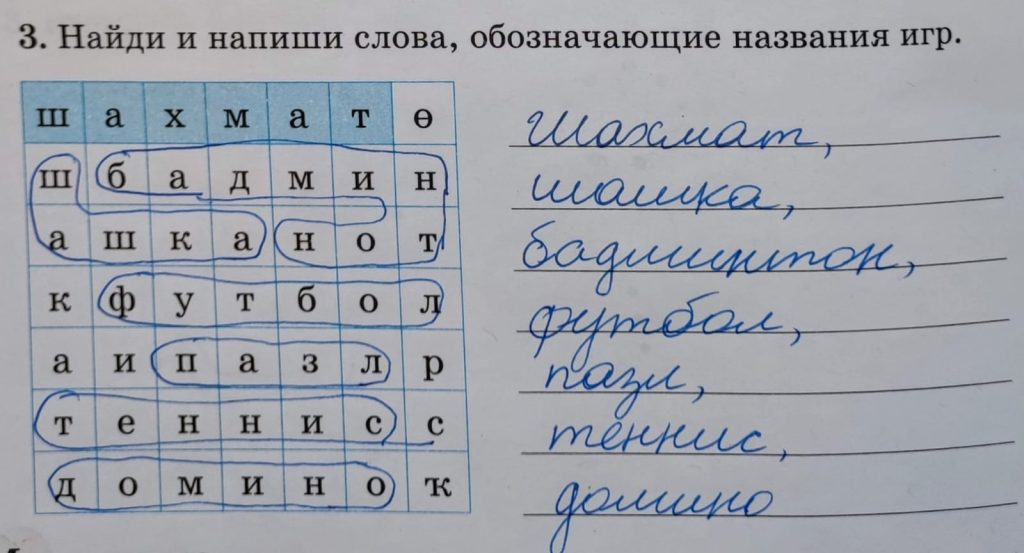 3. Найди и напиши слова, обозначающие названия игр.
ш а х м а т ө
ш б а д м и н
а ш к а н о т
к ф у т б о л
а и п а з л р
т е н н и с с
д о м и н о ҡ
Шахмат,
шашка,
бадминтон,
футбол,
пазл,
теннис,
домино